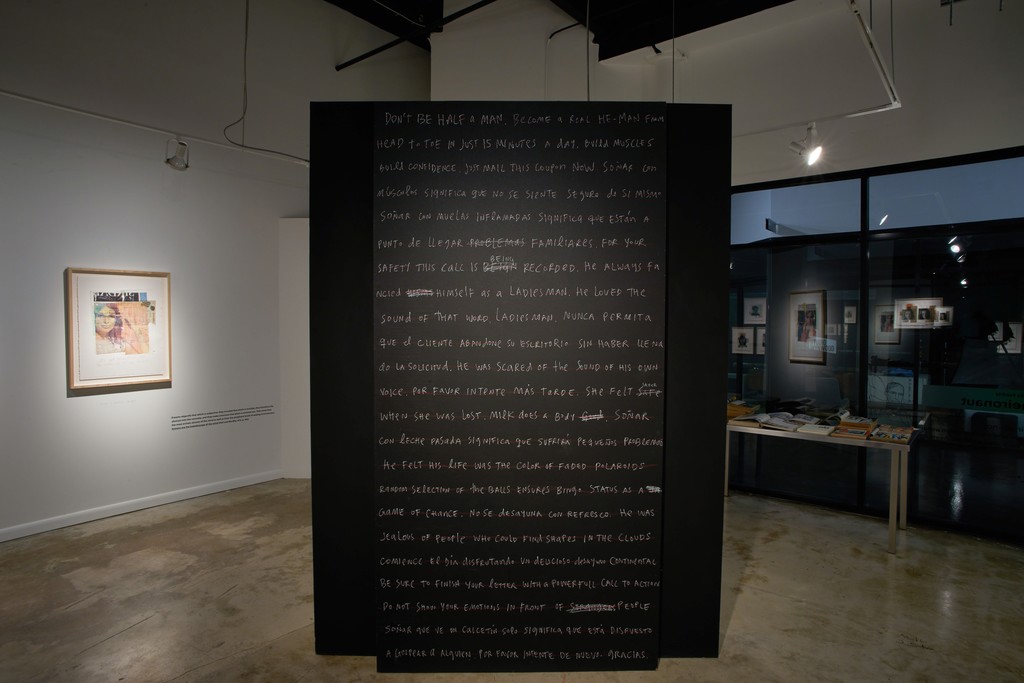 DON'T BE HALF A MAN. BECOME A REAL HE-MAN FROM
HEAD TO TOE IN JUST 15 MINUTES A DAY. BUILD MUSCLES
BUILD CONFIDENCE. JUST MAIL THIS COUPON NOW. SOÑAR CON
MÚSCULOS SIGNIFICA QUE NO SE SIENTE SEGURO DE SI MISMO
SOÑAR CON MUELAS INFLAMADAS SIGNIFICA QUE ESTÁN A
PUNTO DE LLEGAR PROBLEMAS FAMILIARES. FOR YOUR
SAFETY THIS CALL IS BEING RECORDED. HE ALWAYS FA
NCIED HIMSELF AS A LADIESMAN. HE LOVED THE
SOUND OF THAT WORD, LADIESMAN. NUNCA PERMITA
QUE EL CLIENTE ABANDONE SU ESCRITORIO SIN HABER LLENA
DO LA SOLICITUD. HE WAS SCARED OF THE SOUND OF HIS OWN
VOICE. POR FAVOR INTENTE MÁS TARDE. SHE FELT SAFE
WHEN SHE WAS LOST. MILK DOES A BODY GOOD. SOÑAR
CON LECHE PASADA SIGNIFICA QUE SUFRIRÁ PEQUEÑOS PROBLEMAS
HE FELT HIS LIFE WAS THE COLOR OF FADED POLAROIDS
RANDOM SELECTION OF THE BALLS ENSURES BINGO. STATUS AS A
GAME OF CHANCE. NO SE DESAYUNA CON REFRESCO. HE WAS
JEALOUS OF PEOPLE WHO COULD FIND SHAPES IN THE CLOUDS
COMIENCE EL DÍA DISFRUTANDO UN DELICIOSO DESAYUNO CONTINENTAL
BE SURE TO FINISH YOUR LETTER WITH A POWERFULL CALL TO ACTION
DO NOT SHOW YOUR EMOTIONS IN FRONT OF STRANGER PEOPLE
SOÑAR QUE VE UN CALCETÍN SOLO SIGNIFICA QUE ESTÁ DISPUESTO
A GOLPEAR A ALGUIEN. POR FAVOR INTENTE DE NUEVO. GRACIAS.